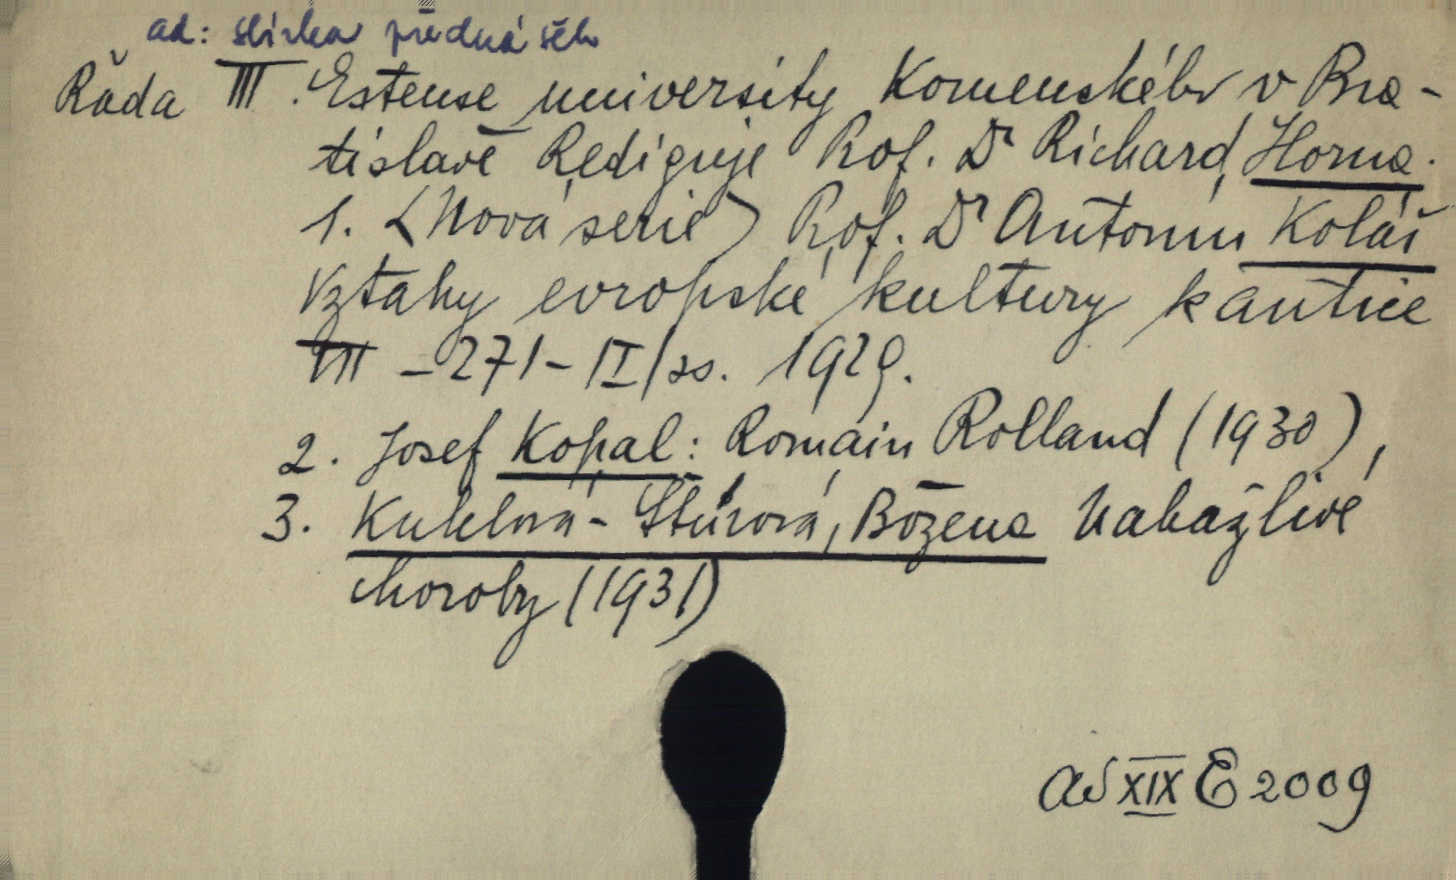 ad: sbírka přednášek
Řada III. Extense university Komenského v Bra-
tislavě Rediguje Prof. Dr Richard Horna.
1. (Nová serie) Prof. Dr Antonín Kolář
Vztahy evropské kultury k antice
VII - 271 - II/ss. 1929.
2. Josef Kopal: Romain Rolland (1930),
3. Kuklová-Štúrová, Božena Nakažlivé
choroby (1931)
ad XIX E 2009